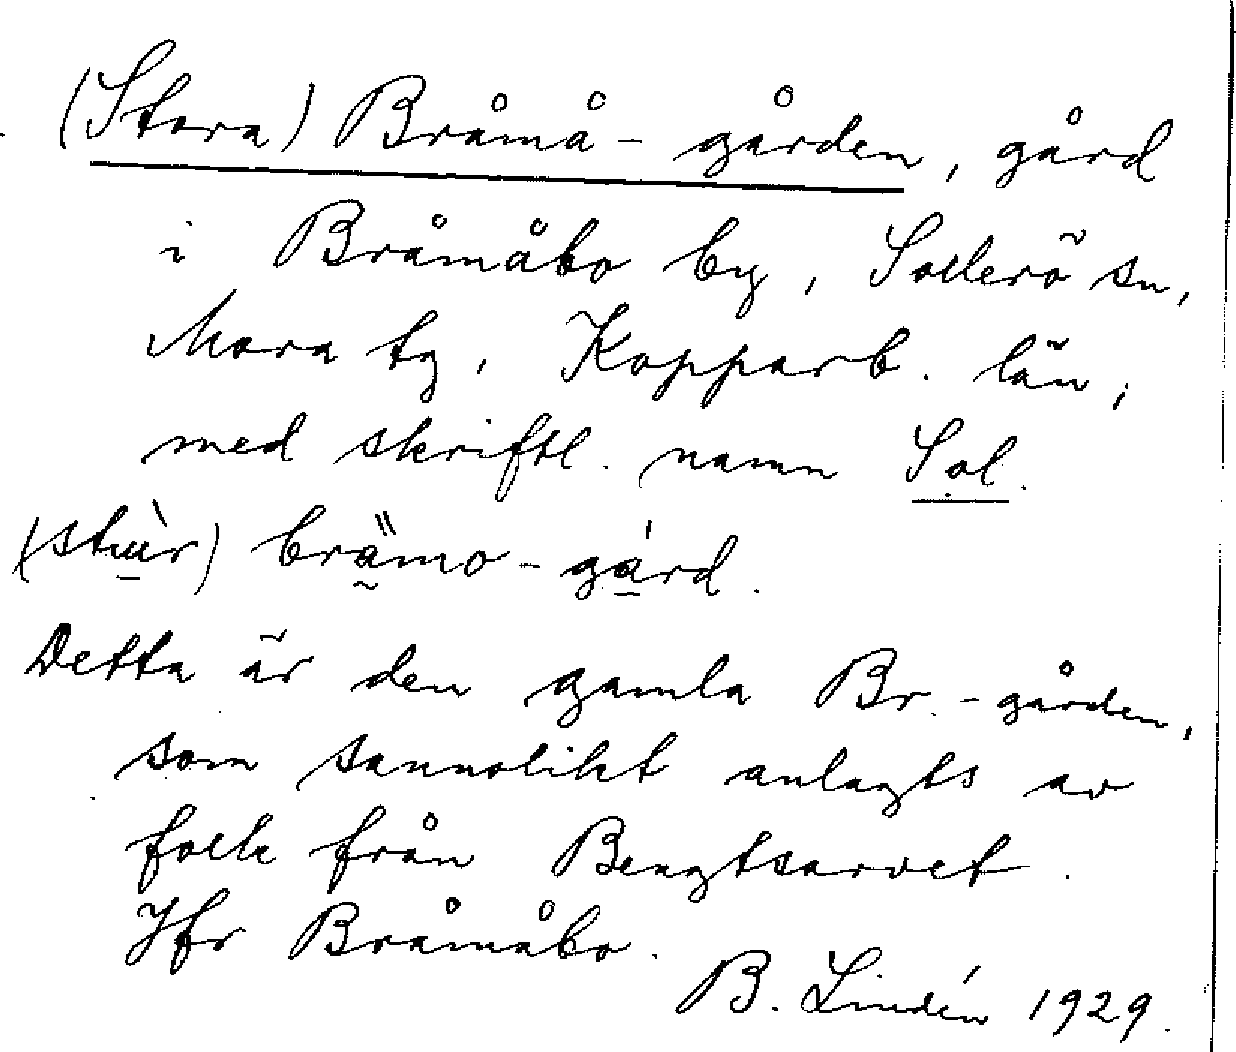 (Stora) Bråmå-gården, gård
i Bråmåbo by, Sollerö sn,
Mora tg, Kopparb. län,
med skriftl. namn Sol.
(stù̠r) brä̰̀mo-gá̠rd.
Detta är den gamla Br.-gården,
som sannolikt anlagts av
folk från Bengtsarvet.
Jfr Bråmåbo.
B. Lindén 1929.